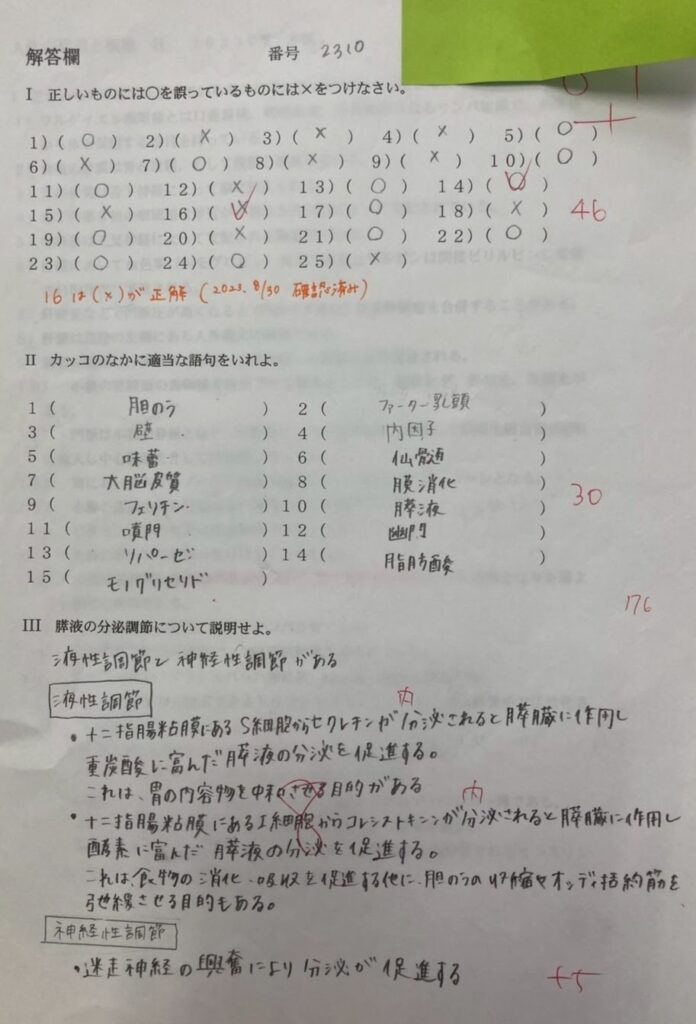 解答欄 番号 2310
I 正しいものには○を誤っているものには×をつけなさい。
1) ( ○ ) 2) ( × ) 3) ( × ) 4) ( × ) 5) ( ○ )
6) ( × ) 7) ( ○ ) 8) ( × ) 9) ( × ) 10) ( ○ )
11) ( ○ ) 12) ( × ) 13) ( ○ ) 14) ( ○ )
15) ( × ) 16) ( × ) 17) ( ○ ) 18) ( × ) 46
19) ( ○ ) 20) ( × ) 21) ( ○ ) 22) ( ○ )
23) ( ○ ) 24) ( ○ ) 25) ( × )
16は(×)が正解 (2023. 8/30 確認済み)
II カッコのなかに適当な語句をいれよ。
1 ( 胆のう ) 2 ( ファーター乳頭 )
3 ( 壁 ) 4 ( 内因子 )
5 ( 味蕾 ) 6 ( 仙骨 )
7 ( 大脳皮質 ) 8 ( 膜消化 )
9 ( フェリチン ) 10 ( 膵液 ) 30
11 ( 噴門 ) 12 ( 幽門 )
13 ( リパーゼ ) 14 ( 脂肪酸 )
15 ( モノグリセリド )
176
III 膵液の分泌調節について説明せよ。
液性調節と神経性調節がある
液性調節
内
・十二指腸粘膜にあるS細胞からセクレチンが分泌されると膵臓に作用し
重炭酸に富んだ膵液の分泌を促進する。
これは、胃の内容物を中和させる目的がある
内
・十二指腸粘膜にあるI細胞からコレシストキニンが分泌されると膵臓に作用し
酵素に富んだ膵液の分泌を促進する。
これは、食物の消化・吸収を促進する他に、胆のうの収縮やオッディ括約筋を
弛緩させる目的もある。
神経性調節
・迷走神経の興奮により分泌が促進する +5